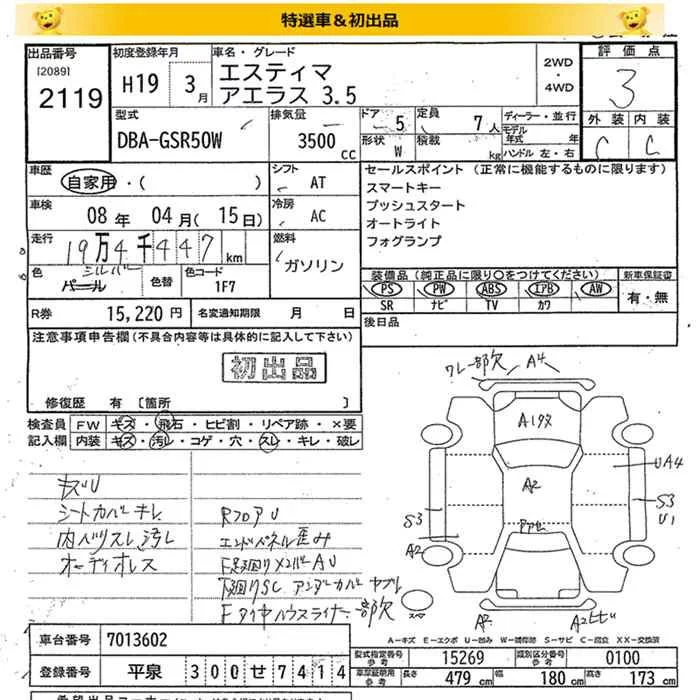 特選車＆初出品
出品番号
[2089]
2119
初度登録年月
H19 3月
車名・グレード
エスティマ
アエラス 3.5
2WD
・
4WD
評価点
3
外装 内装
C C
型式
DBA-GSR50W
排気量
3500 cc
ドア
5
形状
W
定員
7人
積載
kg
ディーラー・並行
モデル
年式 年
ハンドル 左・右
車歴
自家用・( )
シフト
AT
車検
08年 04月(15日)
冷房
AC
走行
19万4千447 km
燃料
ガソリン
色
シルバー
パール
色替
色コード
1F7
R券 15,220円
名変通知期限 月 日
セールスポイント (正常に機能するものに限ります)
スマートキー
プッシュスタート
オートライト
フォグランプ
装備品(純正品に限り○をつけてください)
新車保証書
PS PW ABS エアB AW
SR ナビ TV カワ
有・無
後日品
注意事項申告欄(不具合内容等は具体的に記入して下さい)
初出品
修復歴 有 [箇所 ]
検査員 FW キズ・飛石・ヒビ割・リペア跡・×要
記入欄 内装 キズ・汚レ・コゲ・穴・スレ・キレ・破レ
キズU
シートカバーキレ
内ハリスレ汚レ
オーディオレス
RフロアU
エンドパネル歪み
F足廻りメンバーAU
下廻りSC アンダーカバーヤブレ
Fタイヤハウスライナー一部欠
グレー部欠 A4
A1タヌ
A2
UA4
S3
U1
S3
A2
スペア
A2
A2ヒビ
A-キズ E-エクボ U-凹み W-補修跡 S-サビ C-腐食 XX-交換済
車台番号 7013602
登録番号 平泉 300せ7414
型式指定番号
参考
15269
類別区分番号
参考
0100
車庫証明用
参考
長さ 479cm
幅 180cm
高さ 173cm